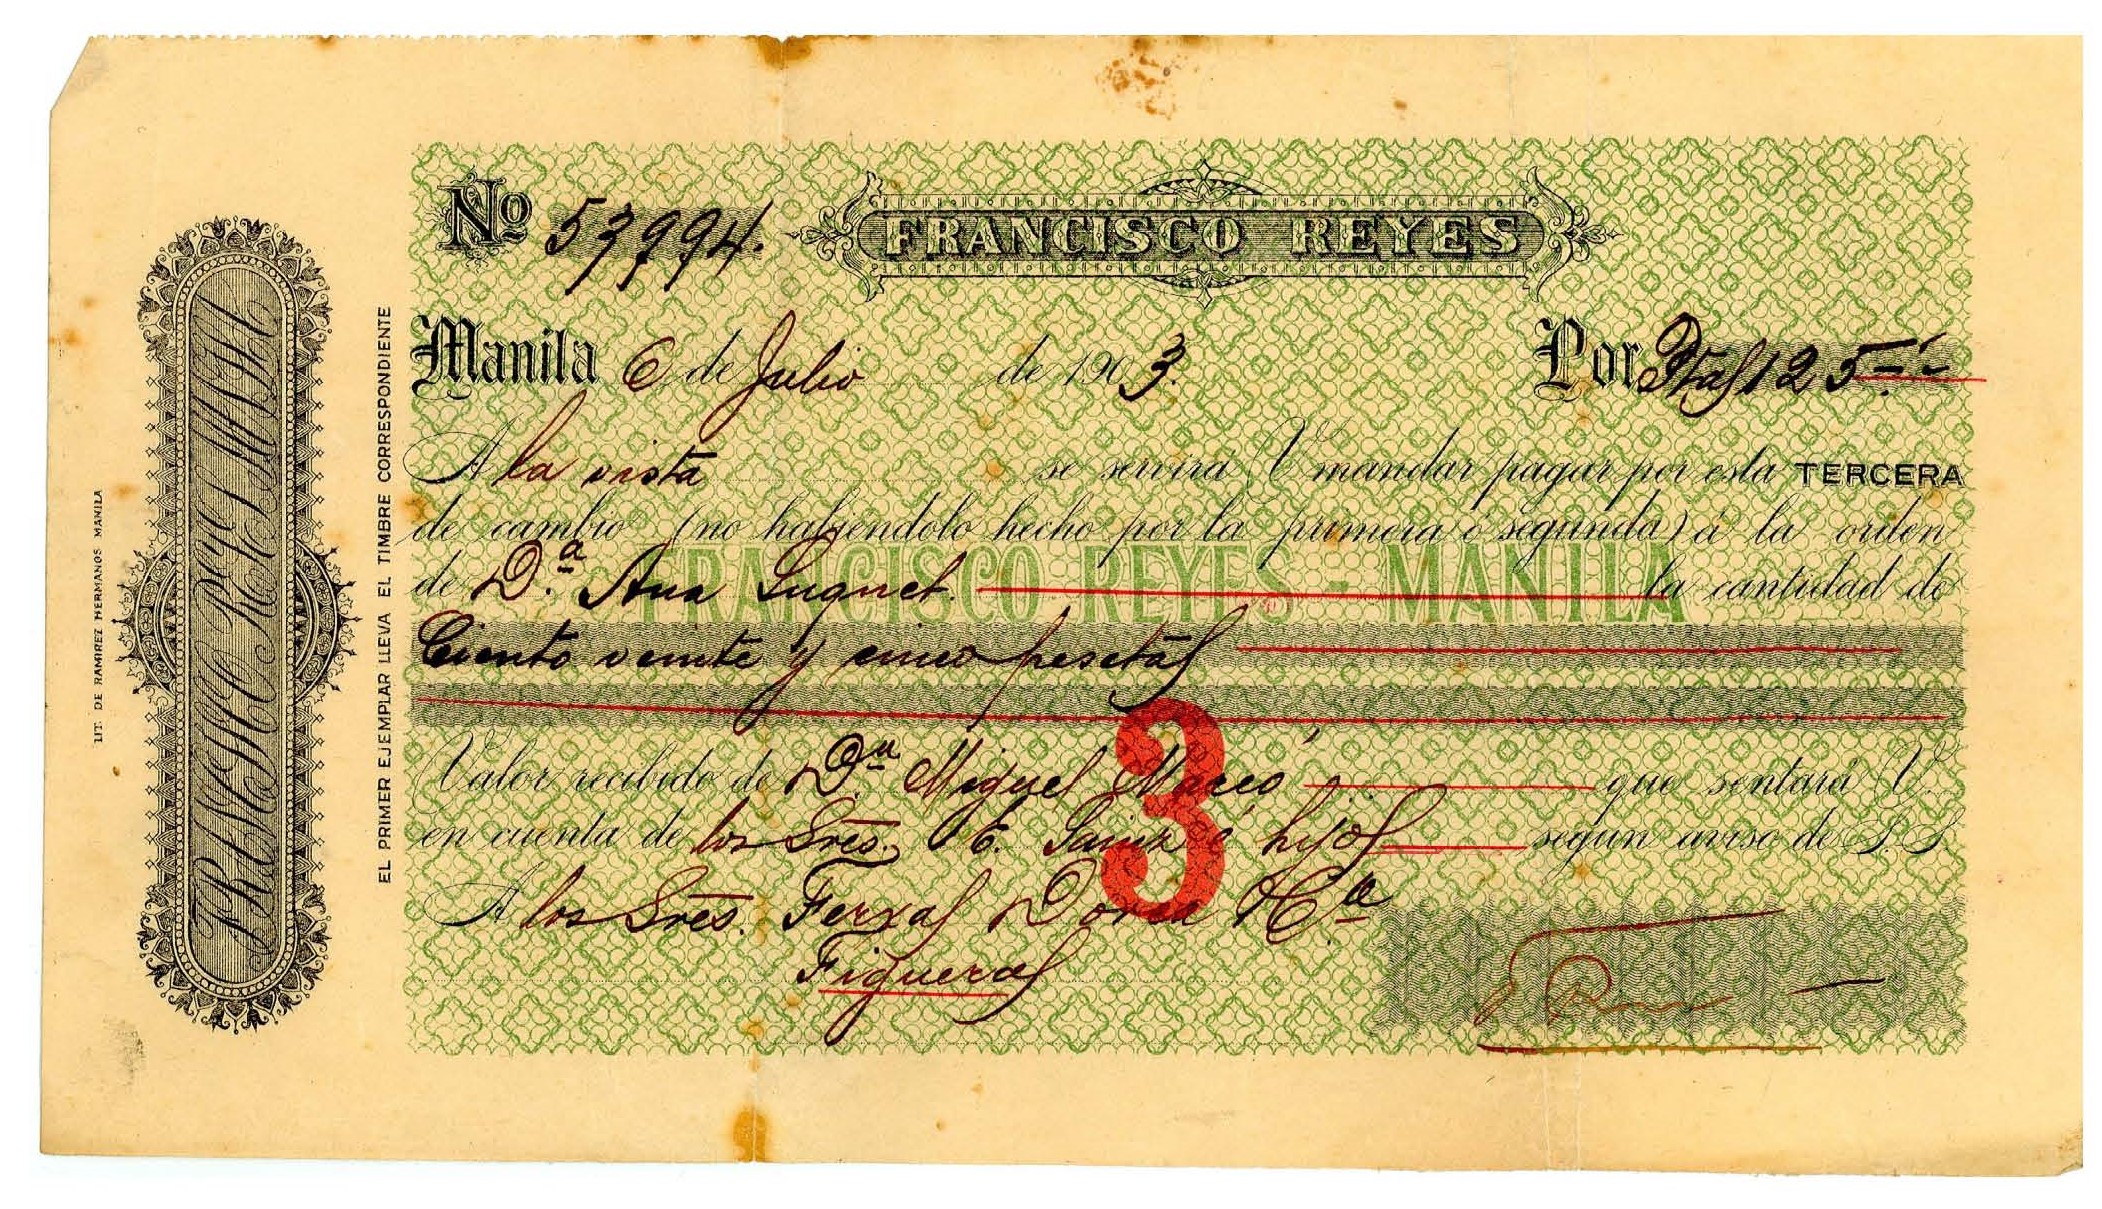 Nº 53994.
FRANCISCO REYES
Manila 6 de Julio de 1903.
Por Ptas 125 -
A la vista se servirá V mandar pagar por esta TERCERA
de cambio (no habiendolo hecho por la primera ó segunda) á la orden
de D.ª Ana Suquet. la cantidad de
FRANCISCO REYES - MANILA
Ciento veinte y cinco pesetas
3
Valor recibido de D.n Miguel Macó que sentará V.
en cuenta de los Sres. E. Sainz é hijos segun aviso de S. S.
A los Sres. Ferxas Dorca & C.ª
Figueras
FRANCISCO REYES MANILA
EL PRIMER EJEMPLAR LLEVA EL TIMBRE CORRESPONDIENTE
LIT. DE RAMIREZ HERMANOS MANILA